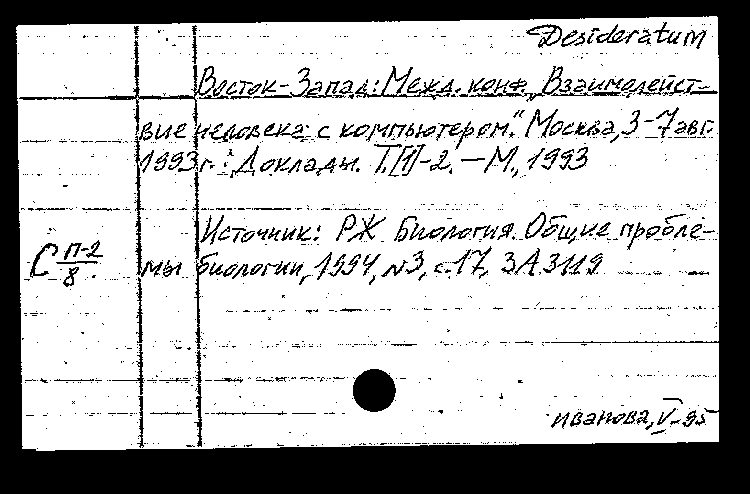 Desideratum
Восток-Запад: Межд. конф. „Взаимодейст-
вие человека с компьютером." Москва, 3-7 авг.
1993 г.: Доклады. Т.[1]-2. – М., 1993
Источник: РЖ Биология. Общие пробле-
мы биологии, 1994, N3, с.17, 3А3119
С П-2
8.
иванова, V-95